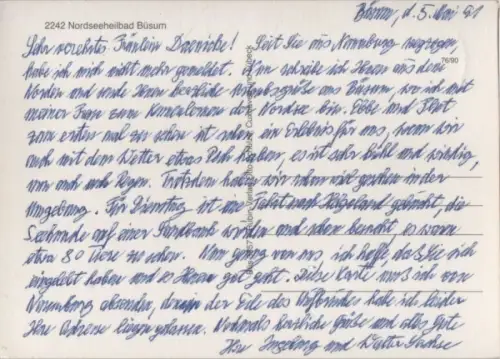 2242 Nordseeheilbad Büsum
Büsum, d. 5. Mai 91
Sehr verehrtes Fräulein! Seit Sie aus Naumburg wegzogen,
habe ich mich nicht mehr gemeldet. Nun schreibe ich Ihnen aus dem
76/90
Norden und sende Ihnen herzliche Urlaubsgrüße aus Büsum, wo ich mit
meiner Frau zum Kennenlernen der Nordsee bin. Ebbe und Flut
zum ersten mal zu sehen ist schon ein Erlebnis für uns, wenn wir
auch mit dem Wetter etwas Pech haben, es ist sehr kühl und windig,
nun auch noch Regen. Trotzdem haben wir schon viel gesehen in der
Umgebung. Für Dienstag ist eine Fahrt nach Helgoland geplant, die
Seehunde auf einer Sandbank wurden uns schon, es waren
etwa 80 Tiere zu sehen. Nun genug von uns, ich hoffe, daß Sie sich
eingelebt haben und es Ihnen gut geht. Diese Karte muß ich von
Naumburg absenden, denn in der Eile des Aufbruches habe ich leider
Ihre Adresse liegen gelassen. Nochmals herzliche Grüße und alles Gute
Ihre Ingeborg und Walter